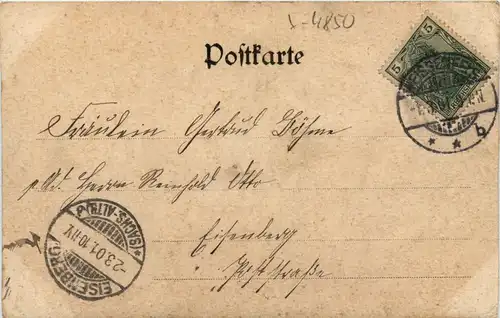 I-4850
Postkarte
5 5
Fräulein Gertrud Böhme
p. Ad. Herrn Reinhold Otto
Eisenberg
Poststraße
* * b
EISENBERG
-2.3.01.10-11V.
*(SACHS.-ALTB.)